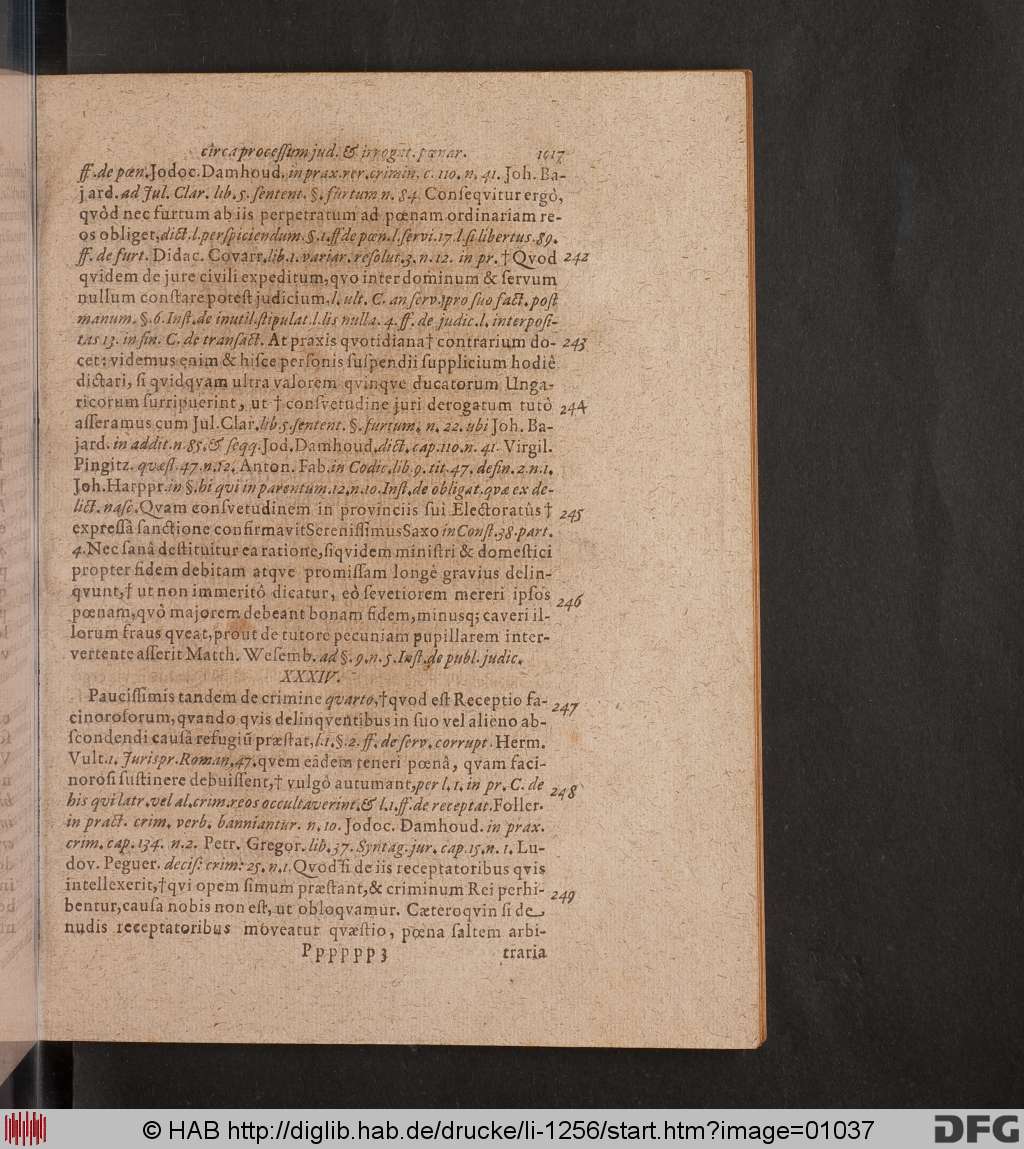 circa processum jud. & irrogat. pœnar. 1017
ff. de pœn. Jodoc. Damhoud. in prax. rer. crimin. c. 110. n. 41. Joh. Ba-
jard. ad Jul. Clar. lib. 5. sentent. §. furtum n. 84. Conseqvitur ergò,
qvòd nec furtum ab iis perpetratum ad pœnam ordinariam re-
os obliget, dict. l. perspiciendum. §. 1. ff de pœn. l. servi. 17. l. si libertus. 89.
ff. de furt. Didac. Covarr. lib. 1. variar. resolut. 3. n. 12. in pr. † Qvod 242
qvidem de jure civili expeditum, qvo inter dominum & servum
nullum constare potest judicium, l. ult. C. an serv. pro suo fact. post
manum. §. 6. Inst. de inutil. stipulat. l. lis nulla. 4. ff. de judic. l. interposi-
tas 13. in fin. C. de transact. At praxis qvotidiana † contrarium do- 243
cet: videmus enim & hisce personis suspendii supplicium hodiè
dictari, si qvidqvam ultra valorem qvinqve ducatorum Unga-
ricorum surripuerint, ut † consvetudine juri derogatum tutò 244
asseramus cum Jul. Clar. lib. 5. sentent. §. furtum. n. 22. ubi Joh. Ba-
jard. in addit. n. 85. & seqq. Jod. Damhoud. dict. cap. 110. n. 41. Virgil.
Pingitz. quæst. 47. n. 12. Anton. Fab. in Codic. lib. 9. tit. 47. defin. 2. n. 1.
Joh. Harppr. in §. hi qui in parentum. 12. n. 10. Inst. de obligat. quæ ex de-
lict. nasc. Qvam consvetudinem in provinciis sui Electoratûs † 245
expressâ sanctione confirmavit Serenissimus Saxo in Const. 38. part.
4. Nec sanâ destituitur ea ratione, siqvidem ministri & domestici
propter fidem debitam atqve promissam longè gravius delin-
qvunt, † ut non immeritò dicatur, eò severiorem mereri ipsos 246
pœnam, qvò majorem debeant bonam fidem, minusq; caveri il-
lorum fraus qveat, prout de tutore pecuniam pupillarem inter-
vertente asserit Matth. Wesemb. ad §. 9. n. 5. Inst. de publ. judic.
XXXIV.
Paucissimis tandem de crimine quarto, † qvod est Receptio fa- 247
cinorosorum, qvando qvis delinqventibus in suo vel alieno ab-
scondendi causâ refugiũ præstat, l. 1. §. 2. ff. de serv. corrupt. Herm.
Vult. 1. Jurispr. Roman. 47. qvem eâdem teneri pœnâ, qvam faci-
norosi sustinere debuissent, † vulgò autumant, per l. 1. in pr. C. de 248
his qui latr. vel al. crim. reos occultaverint. & l. 1. ff. de receptat. Foller.
in pract. crim. verb. banniantur. n. 10. Jodoc. Damhoud. in prax.
crim. cap. 134. n. 2. Petr. Gregor. lib. 37. Syntag. jur. cap. 15. n. 1. Lu-
dov. Peguer. decis: crim: 25. n. 1. Qvod si de iis receptatoribus qvis
intellexerit, † qvi opem simum præstant, & criminum Rei perhi- 249
bentur, causa nobis non est, ut obloqvamur. Cæteroqvin si de
nudis receptatoribus moveatur qvæstio, pœna saltem arbi-
Pppppp 3 traria
© HAB http://diglib.hab.de/drucke/li-1256/start.htm?image=01037
DFG